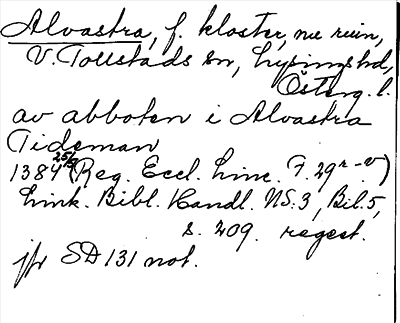 Alvastra, f. kloster, nu ruin,
V. Tollstads sn, Lysings hd,
Österg. l.
av abboten i Alvastra
Tideman
1384 25/3 (Reg. Eccl. Linc. F. 29 r-v)
Link. Bibl. Handl. NS. 3, Bil. 5,
s. 209. regest.
jfr SD 131 not.